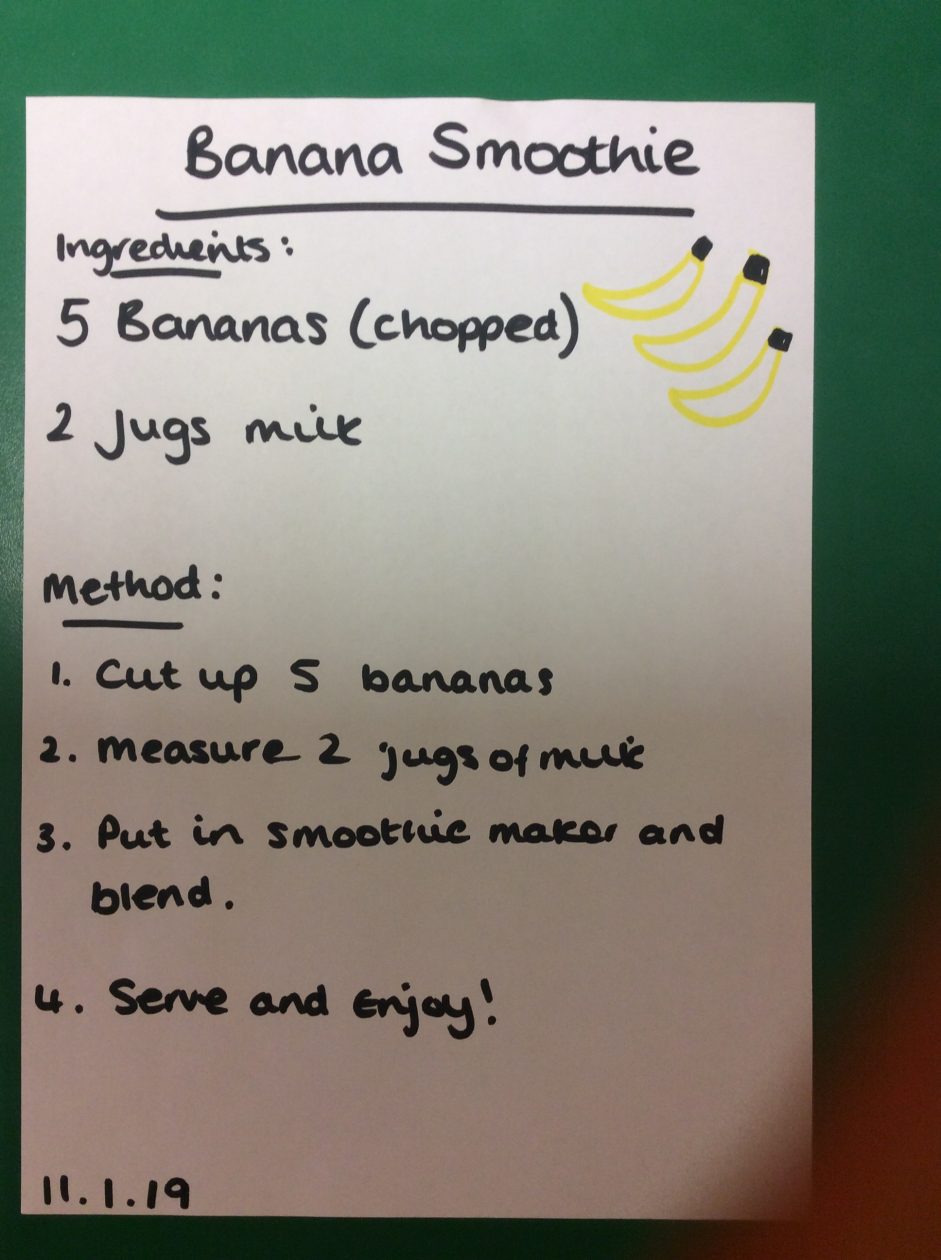 Banana Smoothie
Ingredients:
5 Bananas (chopped)
2 Jugs milk
Method:
1. Cut up 5 bananas
2. measure 2 jugs of milk
3. Put in smoothie maker and
blend.
4. Serve and Enjoy!
11.1.19